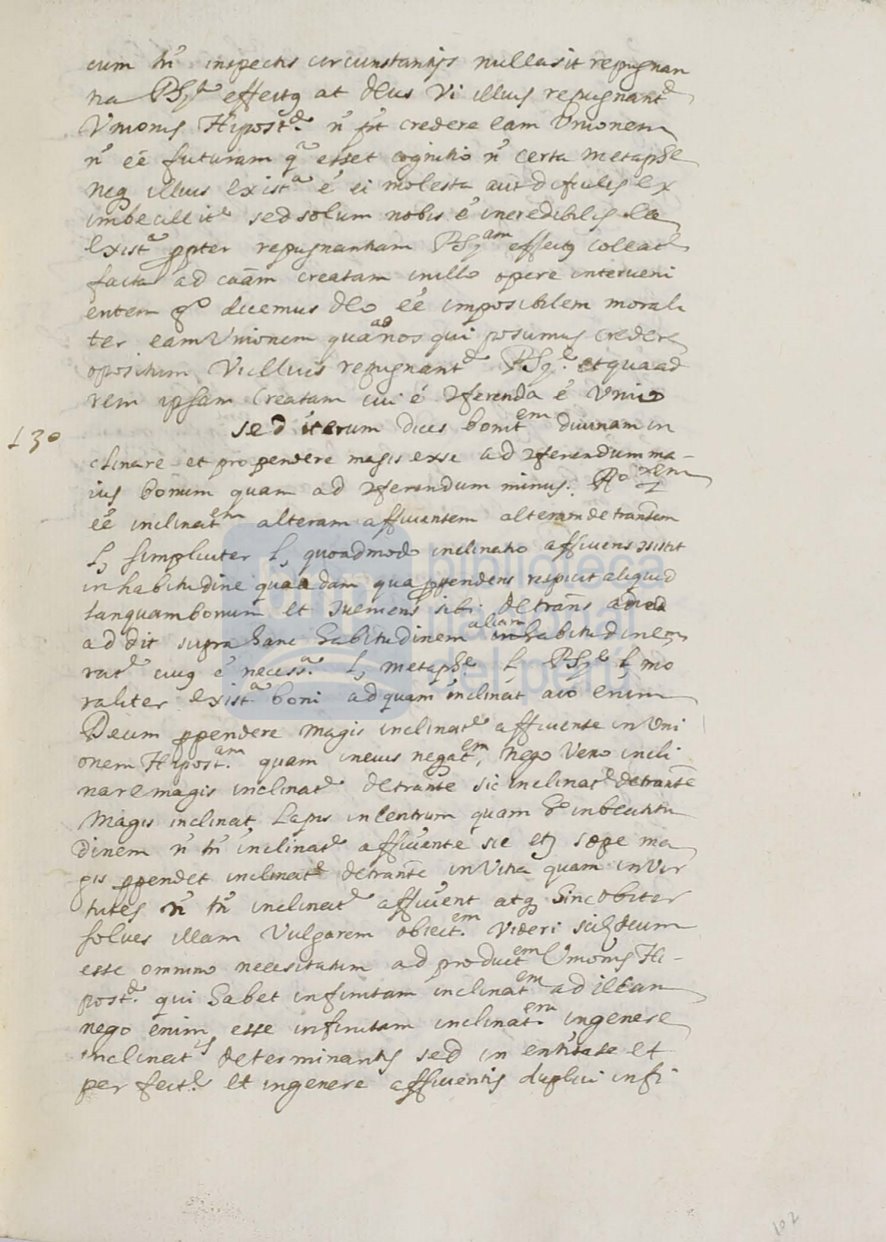 cum tñ inspectis circunstantijs nulla sit repugnan
tia PSyᵃ effectq at Deus Vi illius repugnantᵉ
Vnionis Hipostᵉ. ñ pt credere eam Vnionem
ñ eē futuram qᵃ esset cognitio ñ certa metaphᵉ
neq illius existᵃ ē ei molesta aut dificilis ex
imbecillitᵉ sed solum nobis ē incredibilis
existᵃ ppter repugnantiam PSyᵃᵐ effectq
facta ad caām creatam in illo opere interueni
entem gᵒ dicemus Deo eē imposibilem morali
ter eam Vnionem qua ad nos qui posumus credere
opositum Vi illius repugnantᵉ PSyᵉ. et qua ad
rem ipsam creatam cui ē 2ferenda ē Vnio
130 sed iterum dices bonitᵉᵐ diuinam in
clinare et propendere magis exse ad 2ferendum ma-
ius bonum quam ad 2ferendum minus. Rᵒ
eē inclinatᵉᵐ alteram afficientem alteram detranōem
l, simpliciter l, quoadmodo inclinatio afficiens 2sistit
in habitudine quadam qua ppendens respicit aliquid
tanquam bonum et 2ueniens sibi. detrans
addit supra hanc habitudinem aliam habitudinem
ratᵉ cuiq ē necessᵃ. l, metaphᵉ l, PSyᵉ l, mo
raliter existᵃ boni ad quam inclinat aio enim
Deum ppendere magis inclinatᵉ afficiente in Vni
onem Hipostᵃᵐ. quam in eius negatᵉᵐ, nego Vero incli
nare magis inclinatᵉ detrante sic inclinatᵉ detrante
magis inclinat Lapis in centrum quam hᵒ in beatitu
dinem ñ tñ inclinatᵉ afficiente sic etj sæpe ma
gis ppendet inclinatᵉ detrante in Vitia quam in Vir
tutes ñ tñ inclinatᵉ afficient atq hinc obiter
solues illam Vulgarem obiectᵉᵐ. Videri scil, deum
esse omnino necesitatum ad productᵉᵐ Vnionis Hi-
postᵉ. qui habet infinitam inclinatᵉᵐ ad illam
nego enim esse infinitam inclinatᵉᵐ in genere
inclinatⁱˢ determinantis sed in entitate et
perfectᵉ. et in genere afficientis duplici infi
102
biblioteca
nacional
del perú